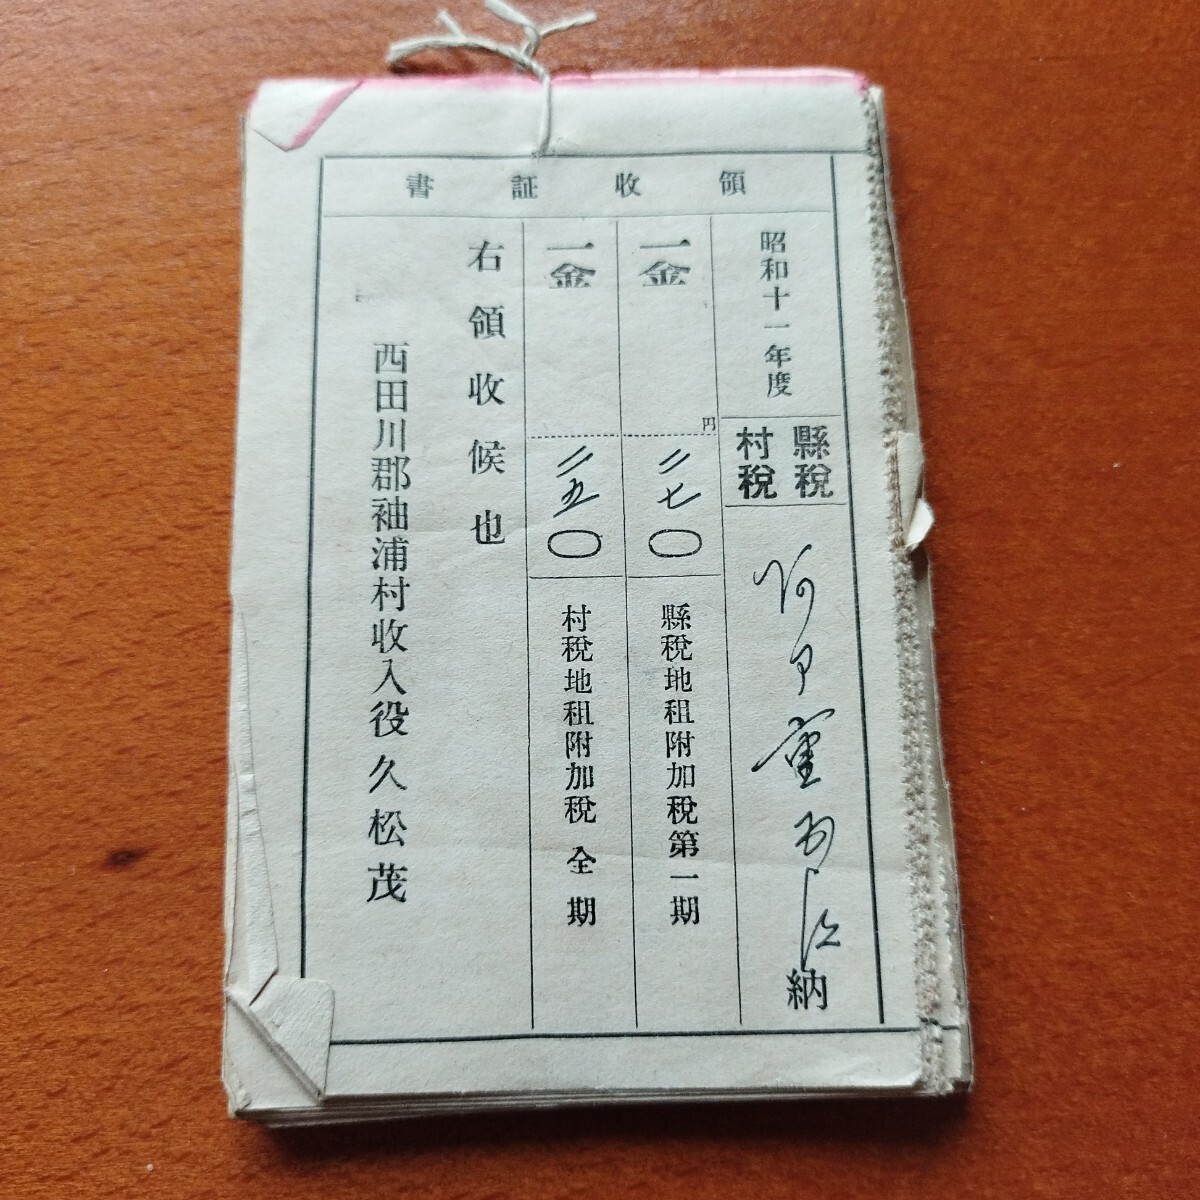 領收証書
昭和十一年度
縣税
村税
納
一金
円
二七〇
縣税地租附加税第一期
一金
二五〇
村税地租附加税 全期
右領收候也
西田川郡袖浦村收入役久松茂